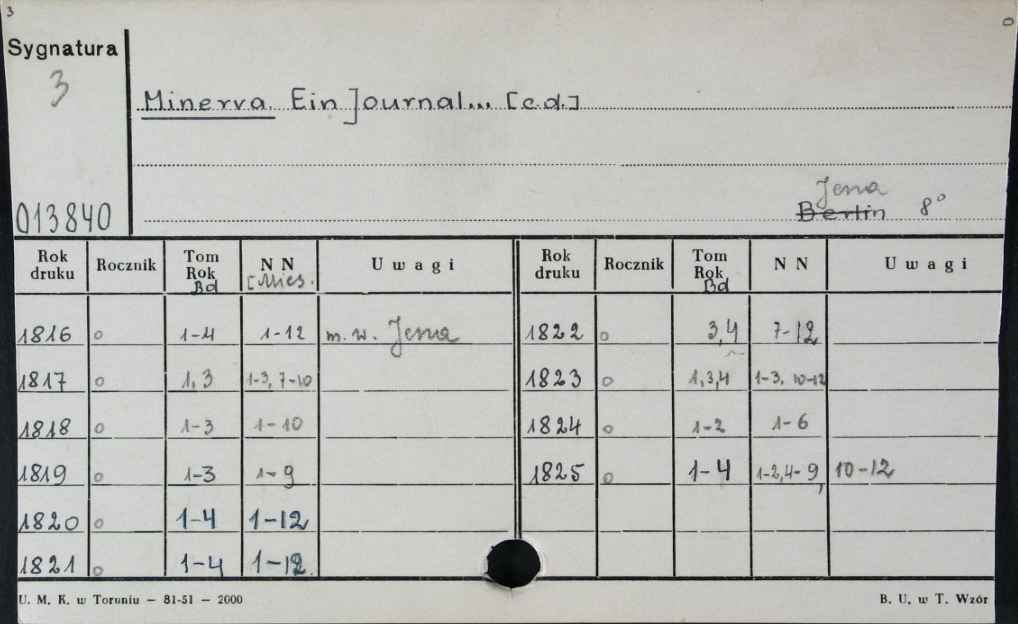 3
0
Sygnatura
3
Minerva. Ein Journal... [c.d.]
Jena
013840
Berlin 8°
Rok druku Rocznik Tom Rok Bd N N [Mies. Uwagi Rok druku Rocznik Tom Rok Bd N N Uwagi
1816 o 1-4 1-12 m.w. Jena 1822 o 3,4 7-12
1817 o 1,3 1-3, 7-10 1823 o 1,3,4 1-3, 10-12
1818 o 1-3 1-10 1824 o 1-2 1-6
1819 o 1-3 1-9 1825 o 1-4 1-2,4-9, 10-12
1820 o 1-4 1-12
1821 o 1-4 1-12.
U. M. K. w Toruniu — 81-51 — 2000 B. U. w T. Wzór